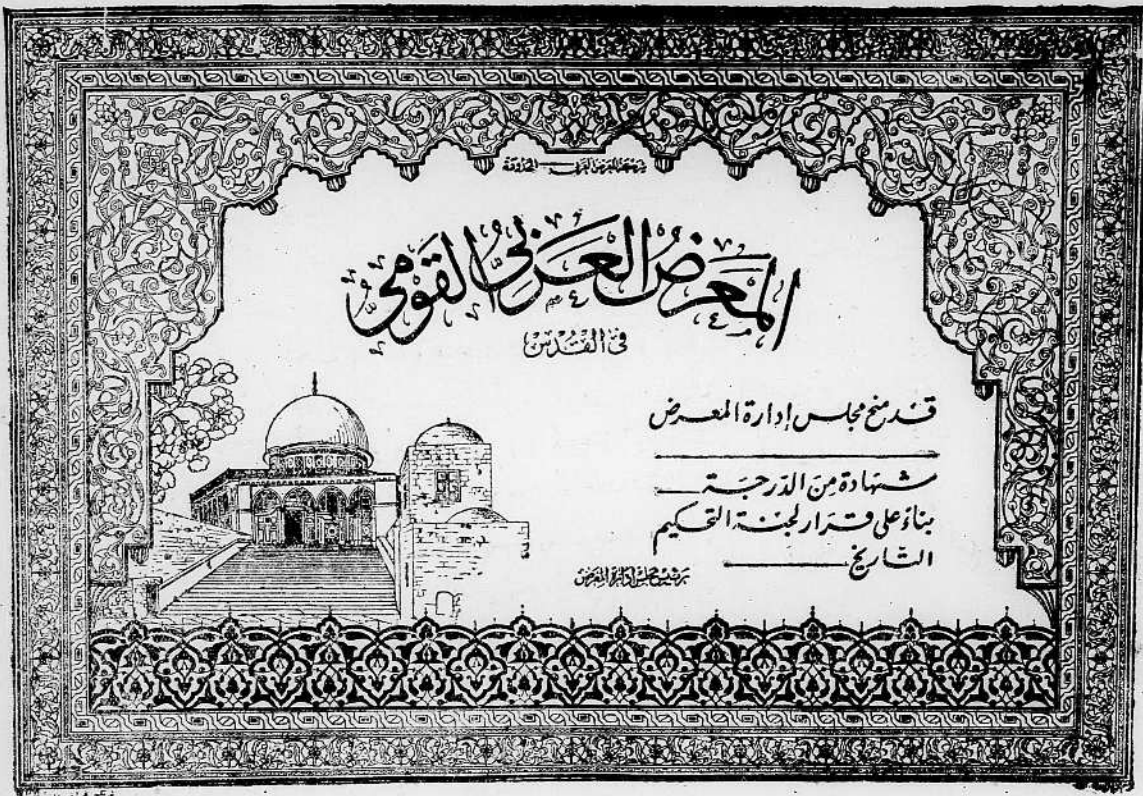 شركة المعرض العربي المحدودة
المعرض العربي القومي
في القدس
قد منح مجلس إدارة المعرض
شهادة من الدرجة
بناءً على قرار لجنة التحكيم
التاريخ
رئيس مجلس إدارة المعرض